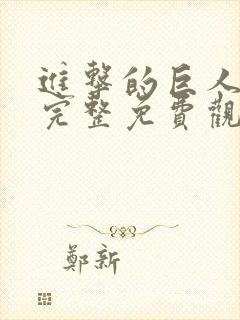 進擊的巨人
完整免費觀
鄭新